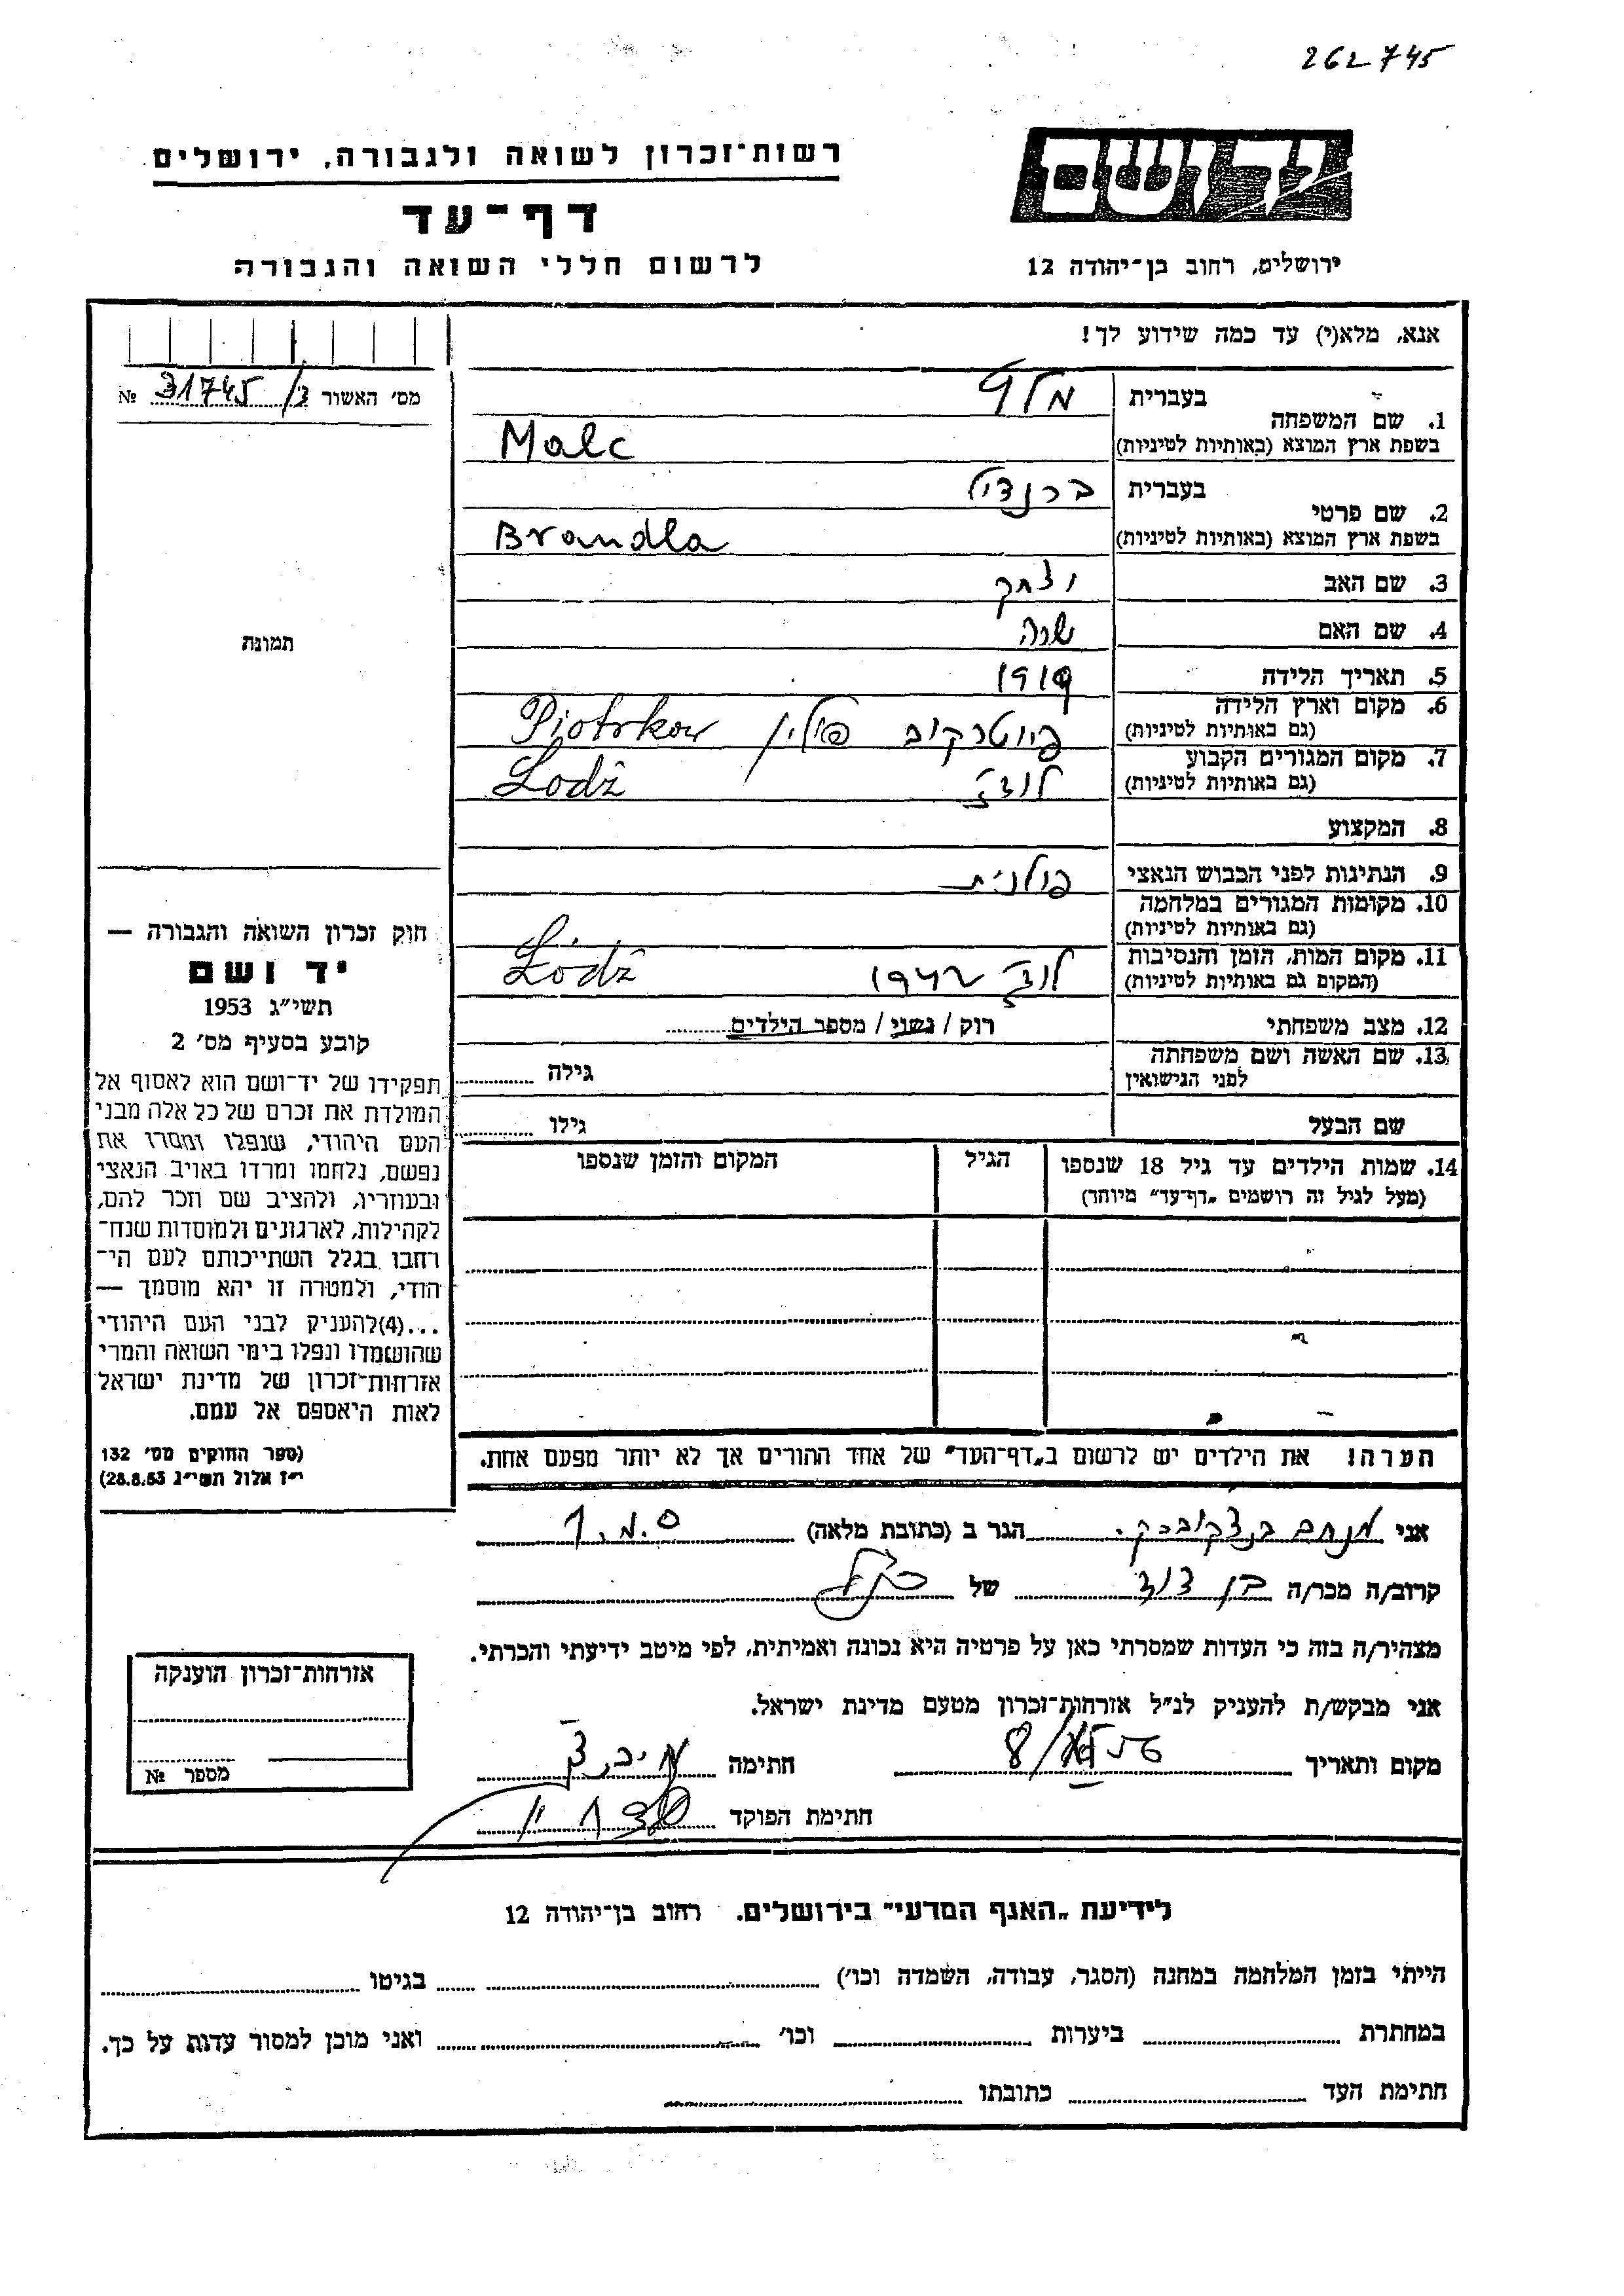 262745
ידושם
רשות־זכרון לשואה ולגבורה, ירושלים
דף־עד
לרשום חללי השואה והגבורה
ירושלים, רחוב בן־יהודה 12
אנא, מלא(י) עד כמה שידוע לך!
מס׳ האשור 31745/3 №
1. שם המשפחה
בעברית מלץ
בשפת ארץ המוצא (באותיות לטיניות) Malc
2. שם פרטי
בעברית ברנדיל
בשפת ארץ המוצא (באותיות לטיניות) Brandla
3. שם האב יצחק
4. שם האם שרה
5. תאריך הלידה 1919
6. מקום וארץ הלידה
(גם באותיות לטיניות) פיוטרקוב פולין Piotrkow
7. מקום המגורים הקבוע
(גם באותיות לטיניות) לודז׳ Łodź
8. המקצוע
9. הנתינות לפני הכבוש הנאצי פולנית
10. מקומות המגורים במלחמה
(גם באותיות לטיניות)
11. מקום המות, הזמן והנסיבות
(המקום גם באותיות לטיניות) לודז׳ 1942 Łódź
12. מצב משפחתי רוק / נשוי / מספר הילדים
13. שם האשה ושם משפחתה
לפני הנישואין גילה
שם הבעל גילו
14. שמות הילדים עד גיל 18 שנספו הגיל המקום והזמן שנספו
(מעל לגיל זה רושמים „דף־עד״ מיוחד)
תמונה
חוק זכרון השואה והגבורה —
יד ושם
תשי״ג 1953
קובע בסעיף מס׳ 2
תפקידו של יד־ושם הוא לאסוף אל
המולדת את זכרם של כל אלה מבני
העם היהודי, שנפלו ומסרו את
נפשם, נלחמו ומרדו באויב הנאצי
ובעוזריו, ולהציב שם וזכר להם,
לקהילות, לארגונים ולמוסדות שנח־
רחבו בגלל השתייכותם לעם הי־
הודי, ולמטרה זו יהא מוסמך —
...(4) להעניק לבני העם היהודי
שהושמדו ונפלו בימי השואה והמרי
אזרחות־זכרון של מדינת ישראל
לאות היאספם אל עמם.
(ספר החוקים מס׳ 132
י״ז אלול תשי״ג 28.8.53)
הערה! את הילדים יש לרשום ב„דף־העד״ של אחד ההורים אך לא יותר מפעם אחת.
אני מנחם הגר ב (כתובת מלאה)
קרוב/ה מכר/ה בן דוד של
מצהיר/ה בזה כי העדות שמסרתי כאן על פרטיה היא נכונה ואמיתית, לפי מיטב ידיעתי והכרתי.
אני מבקש/ת להעניק לנ״ל אזרחות־זכרון מטעם מדינת ישראל.
מקום ותאריך חתימה
חתימת הפוקד
אזרחות־זכרון הוענקה
מספר №
לידיעת „האגף המדעי״ בירושלים. רחוב בן־יהודה 12
הייתי בזמן המלחמה במחנה (הסגר, עבודה, השמדה וכו׳) בגיטו
במחתרת ביערות וכו׳ ואני מוכן למסור עדות על כך.
חתימת העד כתובתו